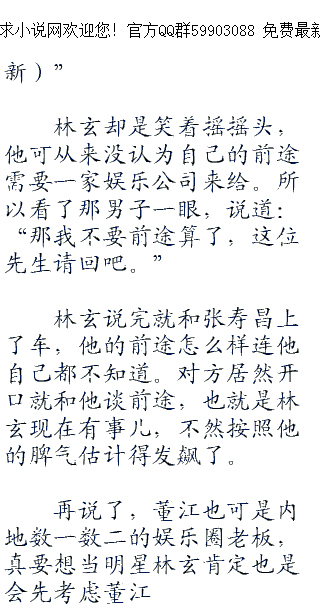 求小说网欢迎您！官方QQ群59903088 免费最新
新）”
林玄却是笑着摇摇头，
他可从来没认为自己的前途
需要一家娱乐公司来给。所
以看了那男子一眼，说道：
“那我不要前途算了，这位
先生请回吧。”
林玄说完就和张寿昌上
了车，他的前途怎么样连他
自己都不知道。对方居然开
口就和他谈前途，也就是林
玄现在有事儿，不然按照他
的脾气估计得发飙了。
再说了，董江也可是内
地数一数二的娱乐圈老板，
真要想当明星林玄肯定也是
会先考虑董江